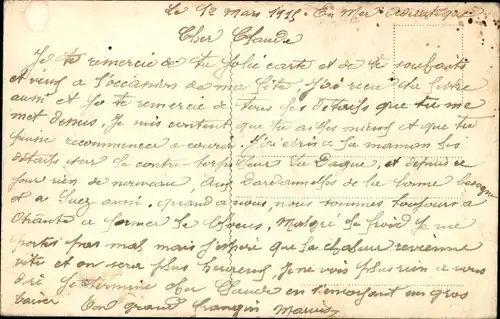 Le 12 Mars 1915. En Mer Adriatique
Cher Claude
Je te remercie de ta jolie carte et de tes souhaits
et veux à l'occasion de ma fête. J'ai reçu ta lettre
aussi et je te remercie de tous les détails que tu me
met dessus. Je suis content que tu ailles mieux et que tu
puisse recommencer à courir. J'ai écris à la maman les
détails sur le contre-torpilleur la Dague, et depuis ce
jour rien de nouveau, Aux Dardannelles de la bonne besogne
et a chez aussi, quand à nous, nous sommes toujours à
Otrante a fermer le blocus, Malgré le froid je me
portes pas mal mais j'espère que la chaleur revienne
vite et on sera plus heureux, Je ne vois plus rien a vous
dire je termine cher Claude en t'envoyant un gros
baiser Ton grand frangin Marius